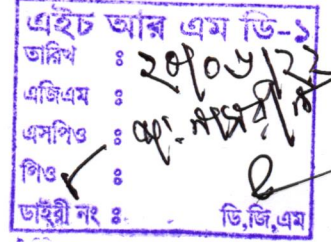 এইচ আর এম ডি-১
তারিখ : ২০/০৬/২২
এজিএম :
এসপিও :
পিও :
ডাইরী নং : ডি,জি,এম